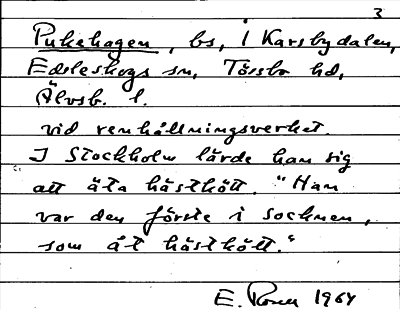 3
Pukehagen, bs, i Karsbydalen,
Edsleskogs sn, Tössbo hd,
Älvsb. l.
vid renhållningsverket.
I Stockholm lärde han sig
att äta hästkött. "Han
var den förste i socknen,
som åt hästkött."
E. 1964